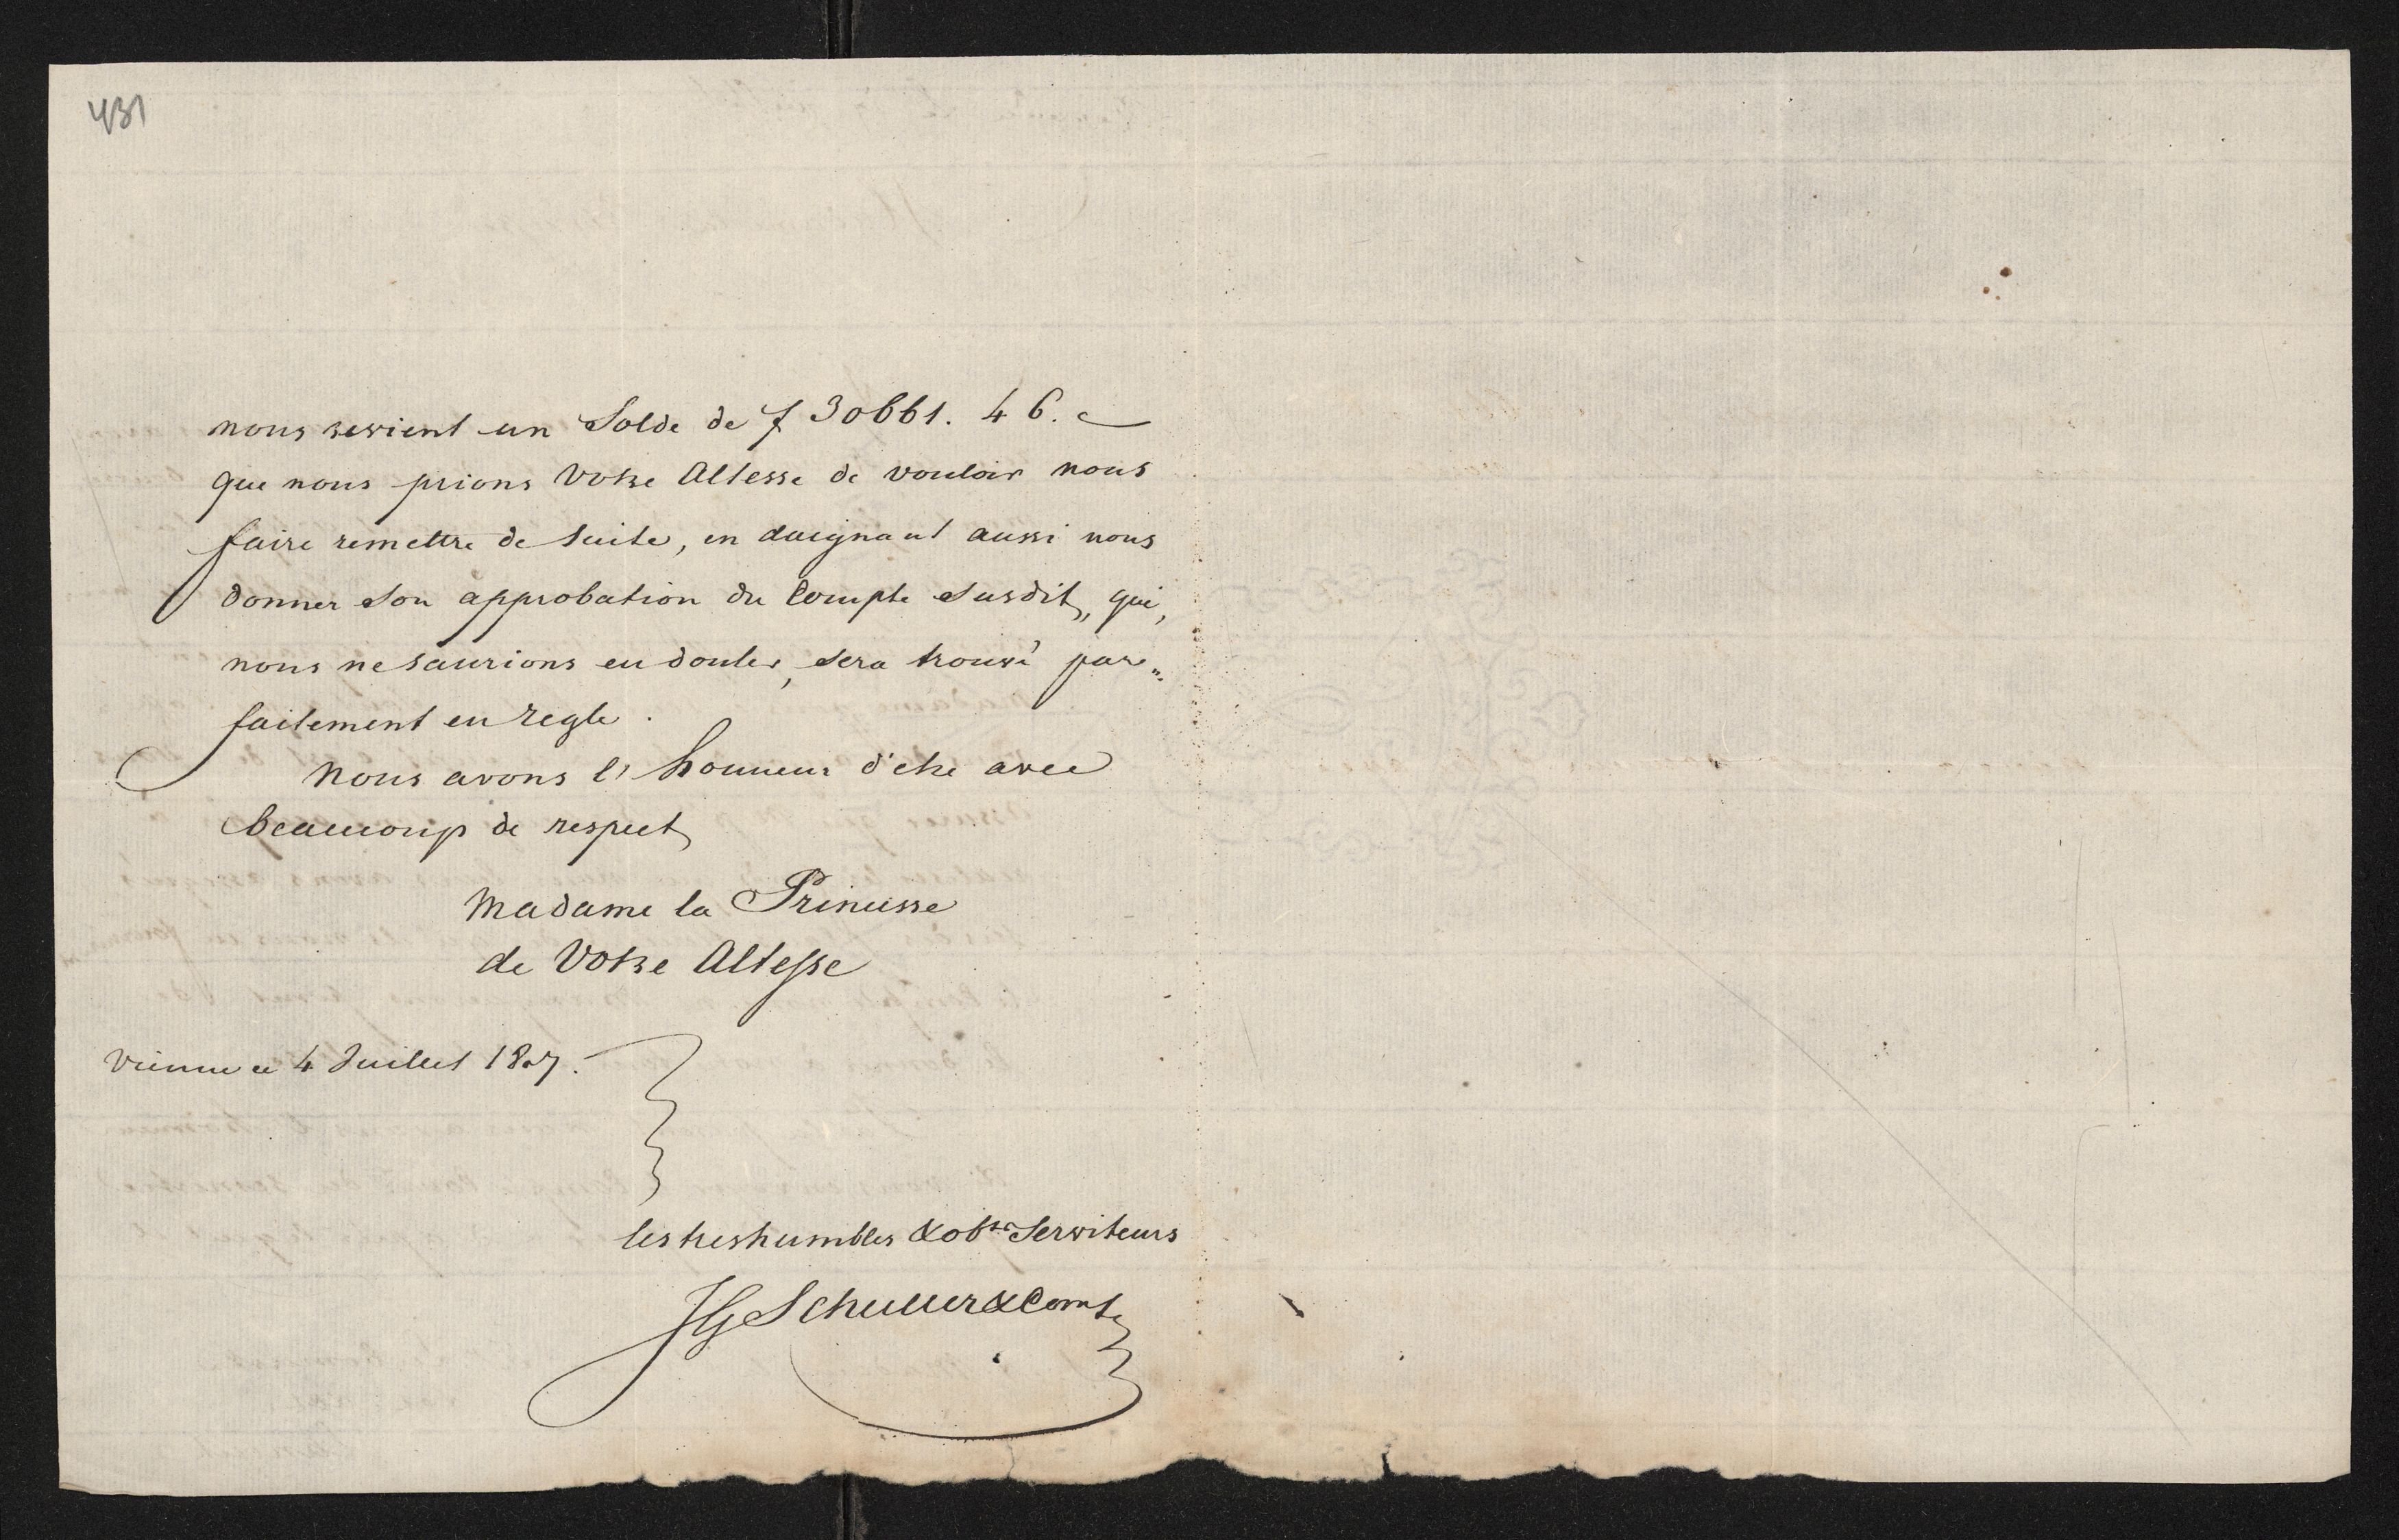 431
nous revient un Solde de f 30661. 46. c
que nous prions Votre Altesse de vouloir nous
faire remettre de Suite, en daignant aussi nous
donner son approbation du Compte susdit, qui,
nous ne saurions en douter, sera trouvé par„
faitement en regle.
Nous avons l'honneur d'etre avec
beaucoup de respect
Madame la Princesse
de Votre Altesse
Vienne ce 4 Juillet 1807.
les tres humbles & obts Serviteurs
JG Schuller & Comp